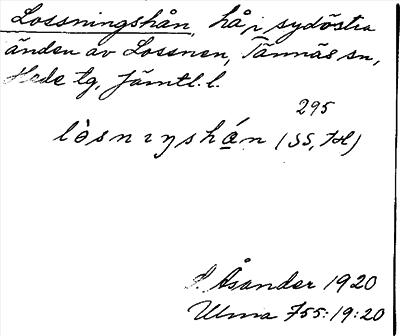 Lossningshån, hå i sydöstra
änden av Lossnen, Tännäs sn,
Hede tg, Jämtl. l.
295
lòsnıŋshán (SS, Hd)
Åsander 1920
Ulma 755:19:20